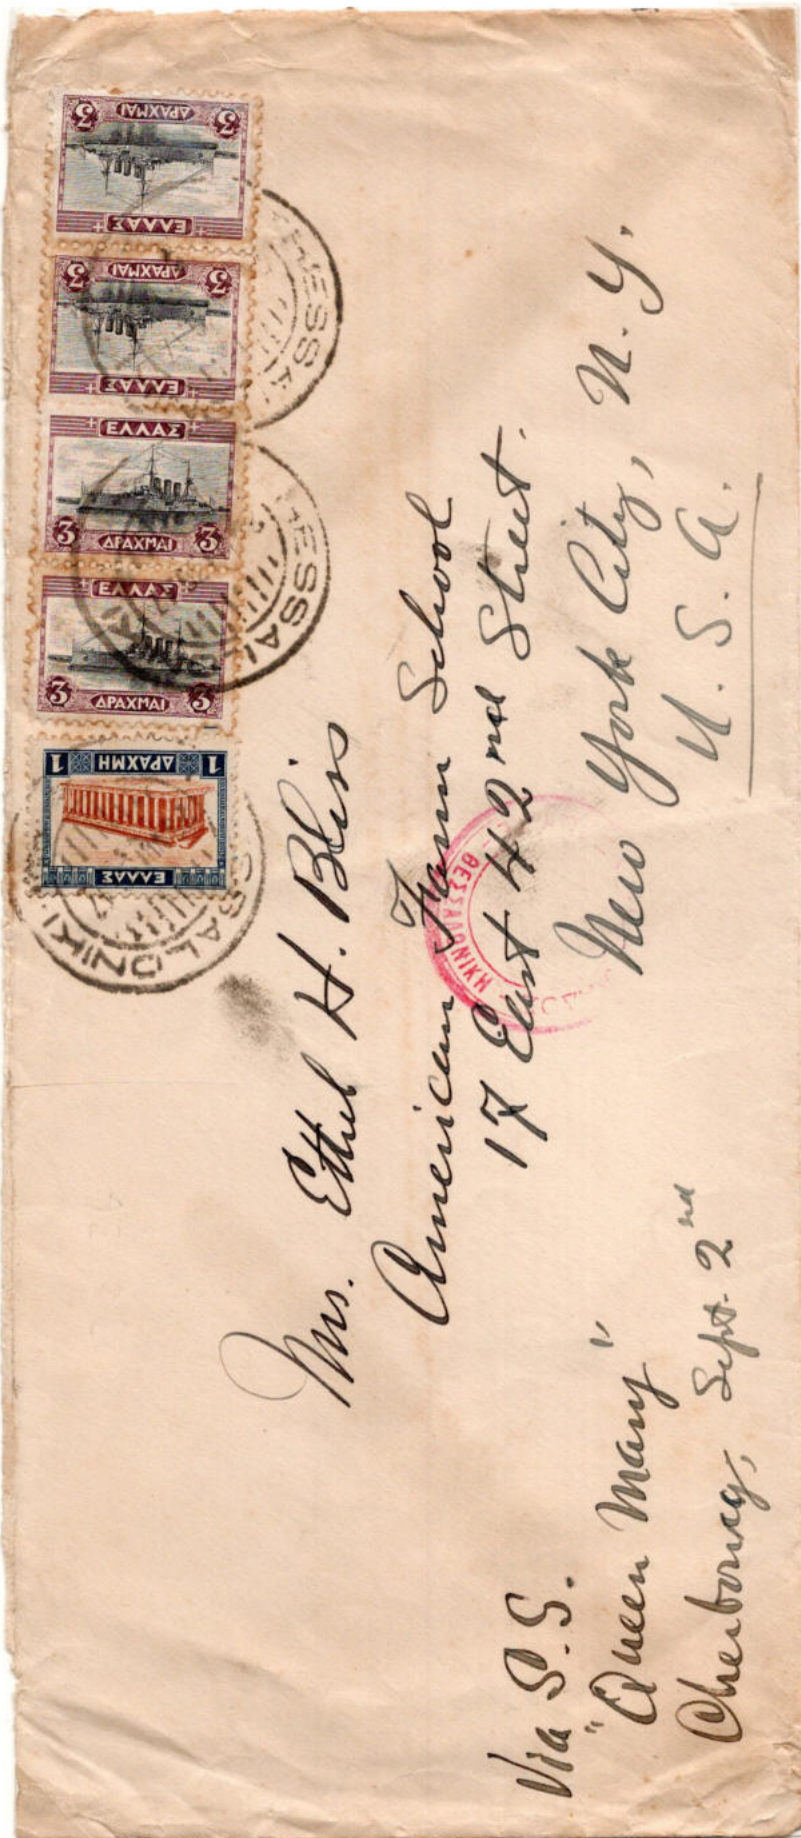 ΔΡΑΧΜΑΙ
3 3
ΕΛΛΑΣ
ΔΡΑΧΜΑΙ
3 3
ΕΛΛΑΣ
ΕΛΛΑΣ
3 ΔΡΑΧΜΑΙ 3
ΕΛΛΑΣ
3 ΔΡΑΧΜΑΙ 3
1 ΔΡΑΧΜΗ 1
ΕΛΛΑΣ
HESSA
HESSAL
SSALONIKI
ΘΕΣΣΑΛΟΝΙΚΗ
Mrs. Ethel H. Bliss
American Farm School
17 East 42nd Street.
New York City, N.Y.
U.S.A.
Via S.S.
"Queen Mary"
Cherbourg, Sept. 2nd